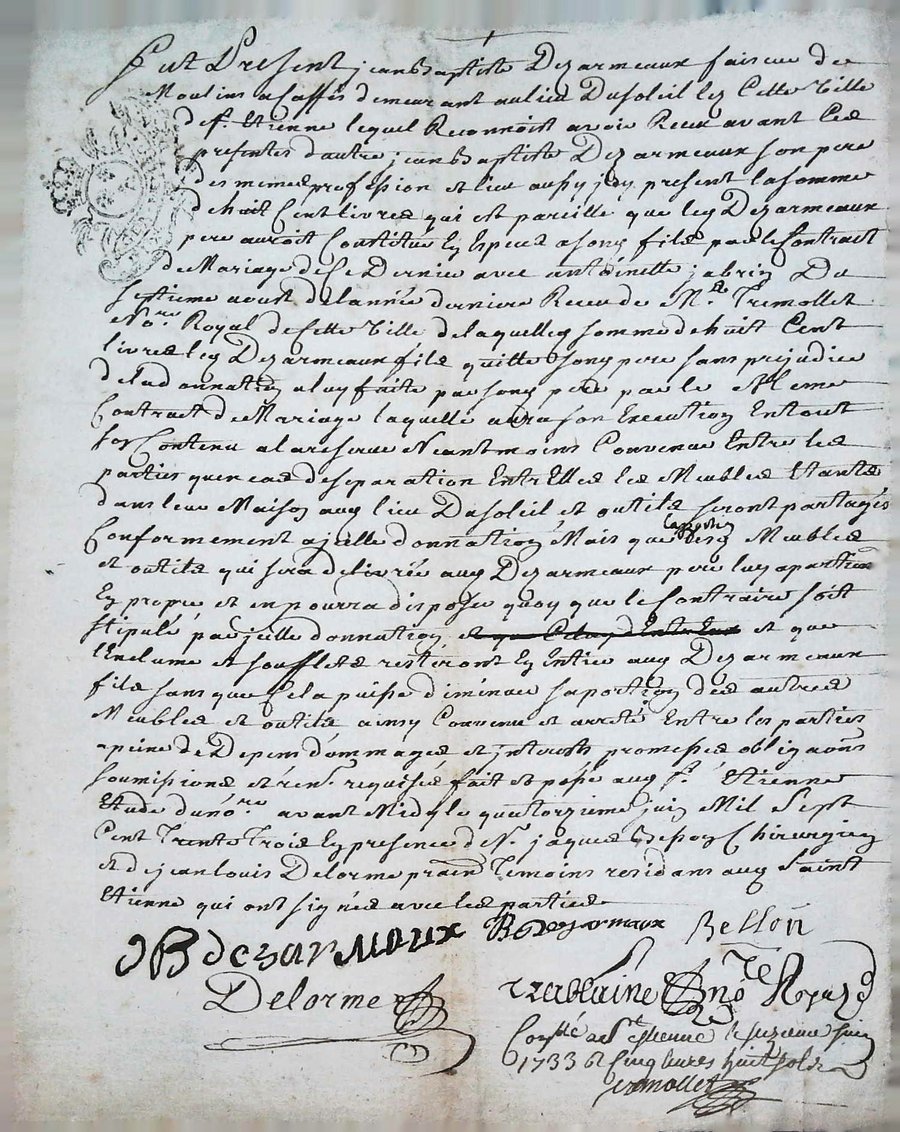 Fut Present jean Baptiste Dezarmeaux faiseur de
Moulins a Caffés demeurant au lieu Dusoleil lez Cette Ville
de St. Etienne lequel Reconnoist avoir Receu avant Ces
presentes d'autre jean Baptiste Dezarmeaux son pere
des memes profession et lieu aussy jcy present la somme
de huit Cent livres qui est pareille que ley Dezarmeaux
pere auroit Constitué Ey Espece a sony fils par le Contract
de Mariage de Ce Dernier avec antoinette jabrin Du
Septieme aoust de l'année derniere Receu de Me. Tremollet
No.re Royal de Cette Ville de laquelley somme de huit Cent
livres ley Dezarmeaux fils quitte sony pere sans prejudice
de la donnatioy a luy faite par sony pere par le Meme
Contract de Mariage laquelle aura son Executioy En tout
soy Contenu a la reserve Neantmoins Convenue Entre les
parties qu'en cas de separation Entr'Elles les Meubles Etants
dans leur Maisoy auy lieu Dusoleil et outils seront partagés
Conformement a jcelle donnatioy Mais que la portioy des Meubles
et outils qui sera delivrée auy Dezarmeaux pere luy apartiendra
Ey propre et en pourra disposer quoy que le Contraire soit
stipulé par jcelle donnatioy et que
l'Enclume et soufflets resteront Ey Entier auy Dezarmeaux
fils sans que Cela puisse diminuer sa portioy des autres
Meubles et outils ainsy Convenu et arreté Entre les parties
a peine de Depens dommages et jnterests promesses obligaõns
soumissions et ren. requises fait et passé auy St Etienne
Etude du no.re avant Midy le quatorzieme juiy Mil Sept
Cent Trente Trois Ey presence de Sr. jaques Bessoy Chirurgiey
et de jean louis Delorme Temoins residans auy Saint
Etienne qui ont signés avec les parties
JB dezarmaux B Dezarmaux Besson
Delorme
no re Royal
Conllé a St estienne le juin
1733 Cinq livres huit sols
Tremollet